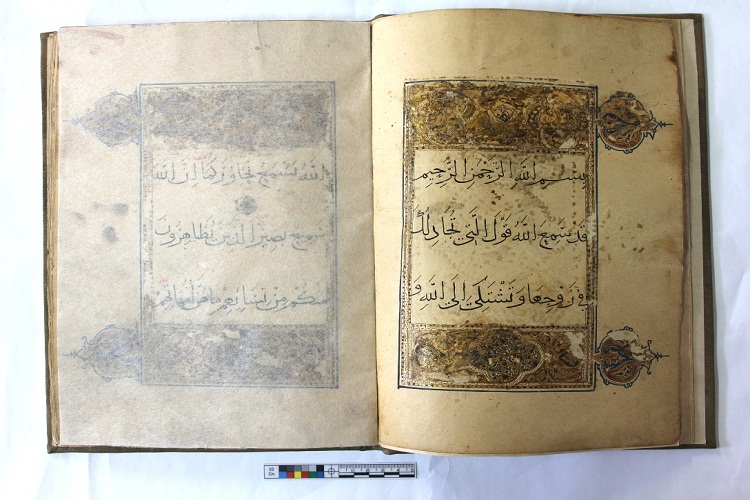 بِسْمِ اللَّهِ الرَّحْمَنِ الرَّحِيمِ
قَدْ سَمِعَ اللَّهُ قَوْلَ الَّتِي تُجَادِلُكَ
فِي زَوْجِهَا وَتَشْتَكِي إِلَى اللَّهِ وَ
اللَّهُ يَسْمَعُ تَحَاوُرَكُمَا إِنَّ اللَّهَ
سَمِيعٌ بَصِيرٌ الَّذِينَ يُظَاهِرُونَ
مِنْكُمْ مِنْ نِسَائِهِمْ مَا هُنَّ أُمَّهَاتِهِمْ